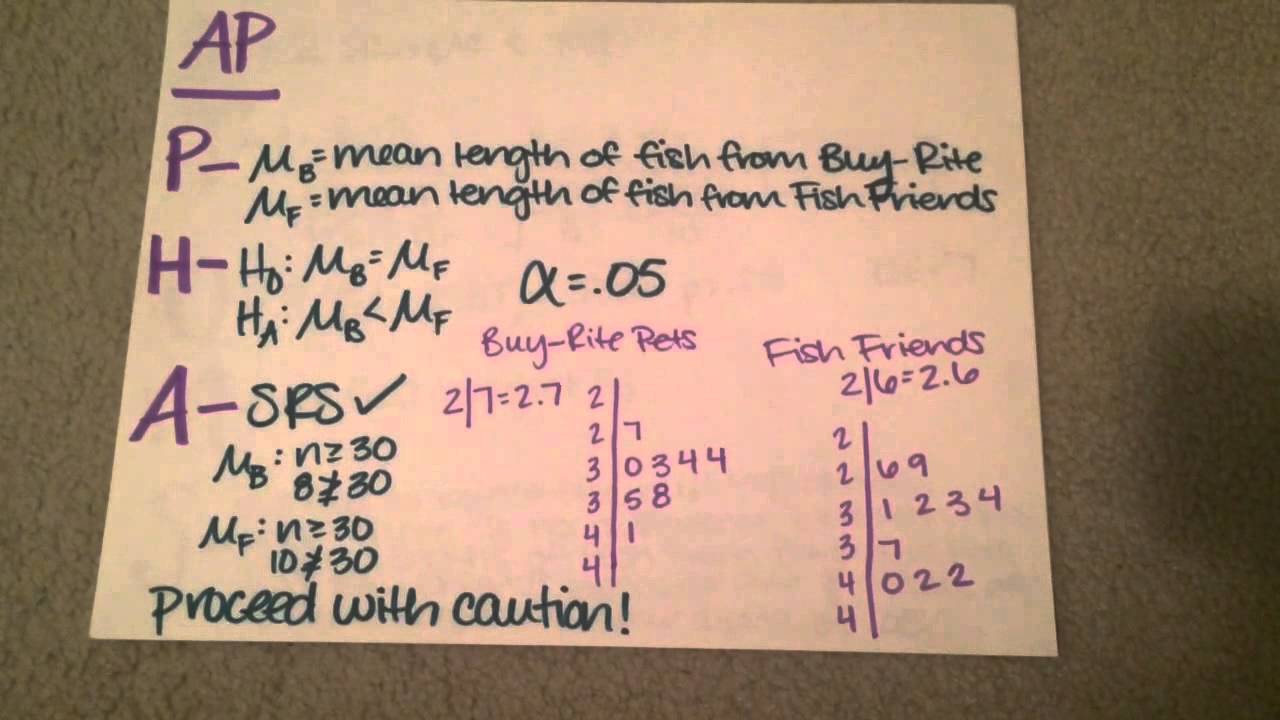 AP
P- μB = mean length of fish from Buy-Rite
μF = mean length of fish from Fish Friends
H- H0: μB = μF
HA: μB < μF
α = .05
A- SRS ✓
μB: n ≥ 30
8 ≱ 30
μF: n ≥ 30
10 ≱ 30
Proceed with caution!
Buy-Rite Pets
2|7 = 2.7
2|
2|7
3|0 3 4 4
3|5 8
4|1
4|
Fish Friends
2|6 = 2.6
2|
2|6 9
3|1 2 3 4
3|7
4|0 2 2
4|